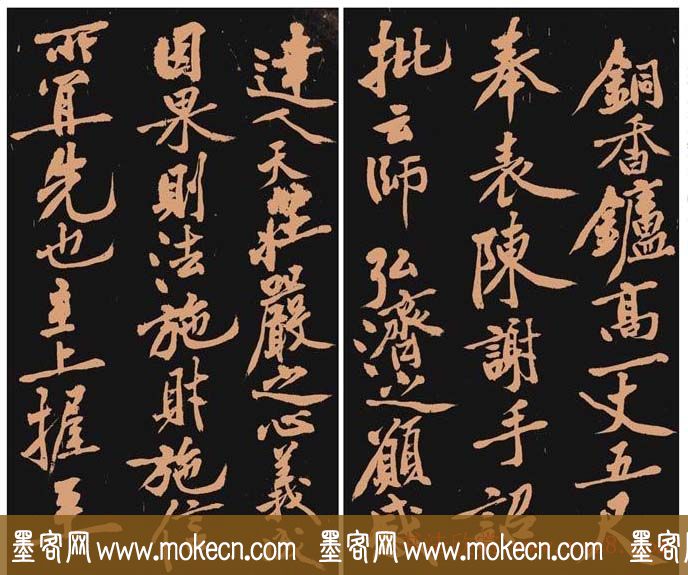 銅香鑪高一丈五尺
奉表陳謝手詔
批云師弘濟之願感
達人天莊嚴之心義感
因果則法施財施信
所宜先也主上握至
墨客网 www.mokecn.com 墨客网 www.mokecn.com 墨客网